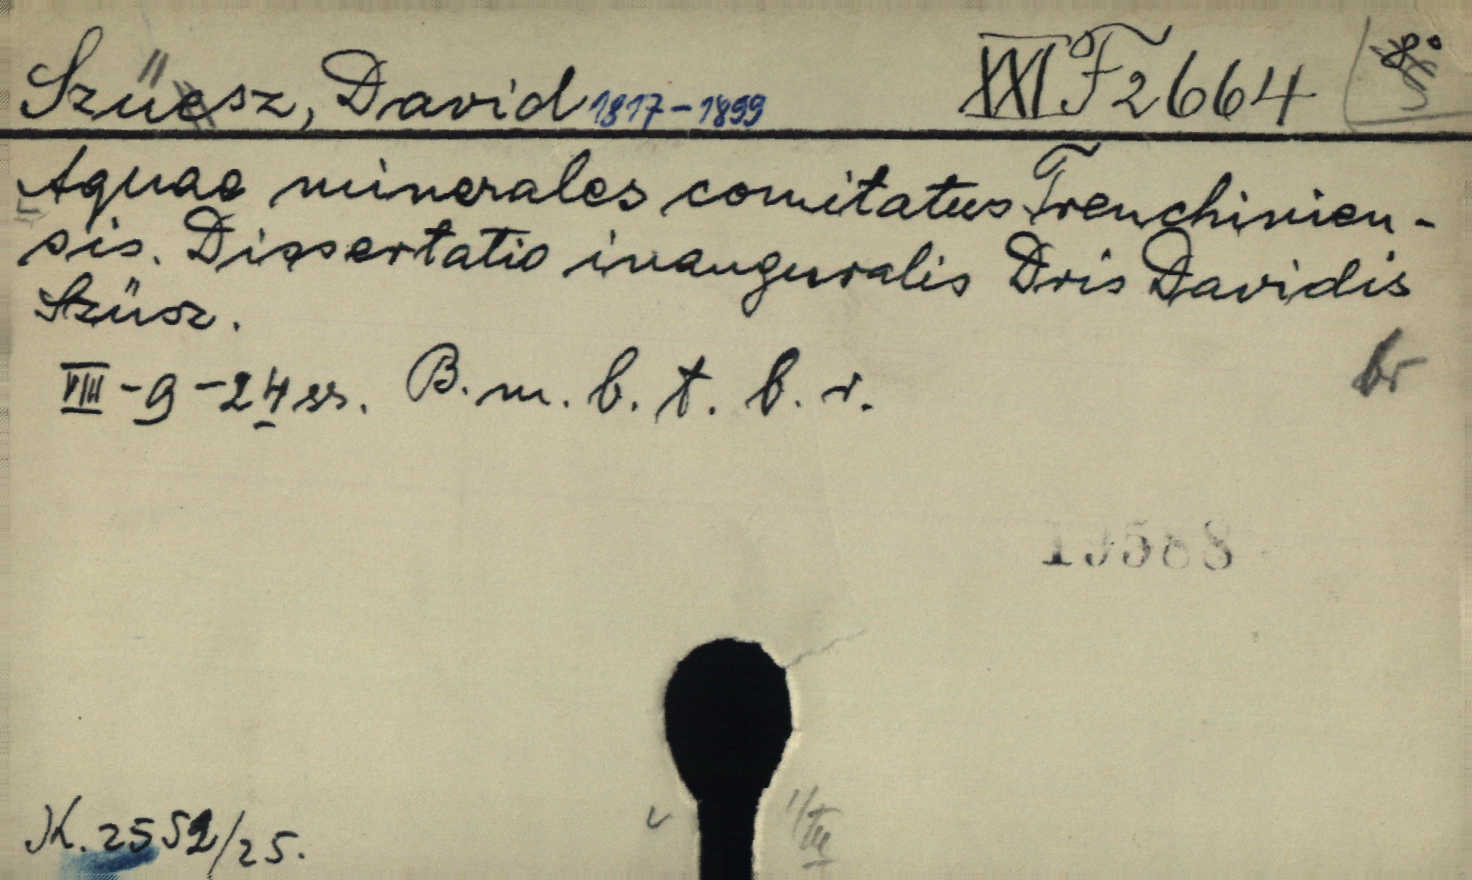 Szűcsz, David 1817-1899 XXI F 2664 8°
Aquae minerales comitatus Trenchinien-
sis. Dissertatio inauguralis Dris Davidis
Szüsz.
VIII-9-24 ss. B. m. b. t. b. r. br
19588
K. 2552/25.